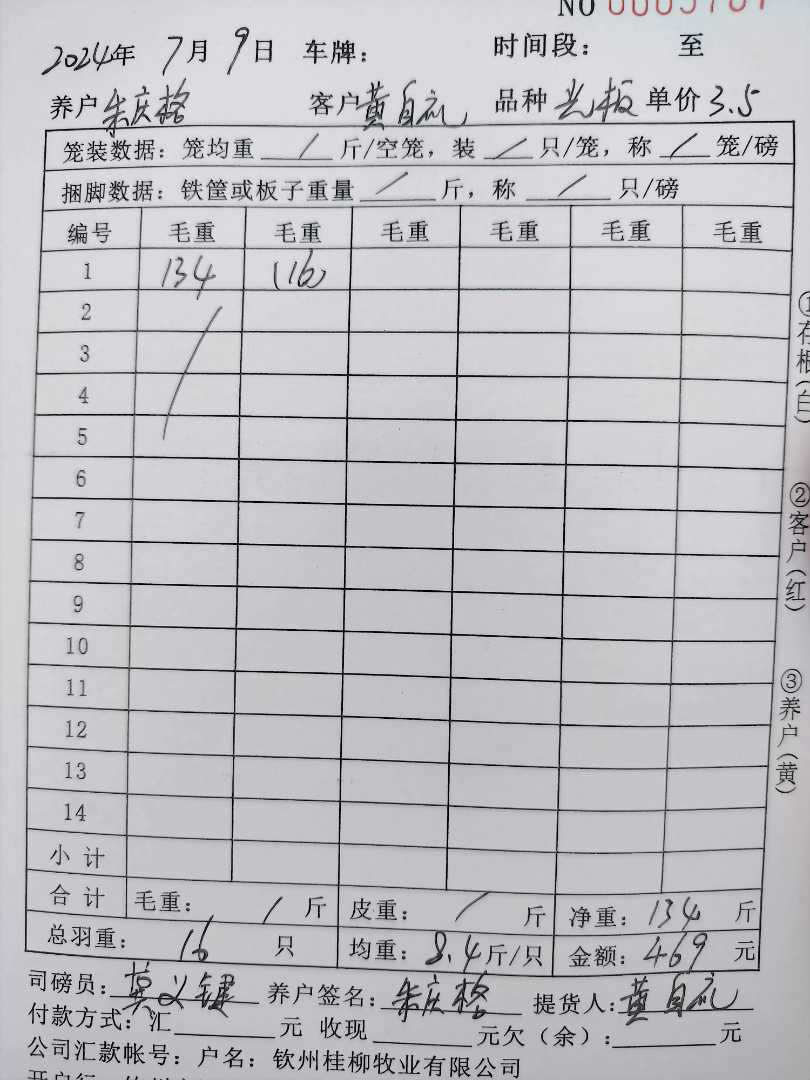 NO 0005787
2024年 7月 9日 车牌： 时间段： 至
养户 朱庆格 客户 黄自礼 品种 光板 单价 3.5
笼装数据：笼均重 / 斤/空笼，装 / 只/笼，称 / 笼/磅
捆脚数据：铁筐或板子重量 / 斤，称 / 只/磅
编号 毛重 毛重 毛重 毛重 毛重 毛重
1 134 (16)
2
3
4
5
6
7
8
9
10
11
12
13
14
小计
合计 毛重： / 斤 皮重： / 斤 净重：134 斤
总羽重： 16 只 均重：8.4斤/只 金额：469 元
司磅员：莫义键 养户签名：朱庆格 提货人：黄自礼
付款方式：汇 元 收现 元欠（余）： 元
公司汇款帐号：户名：钦州桂柳牧业有限公司
①存根(白)
②客户(红)
③养户(黄)